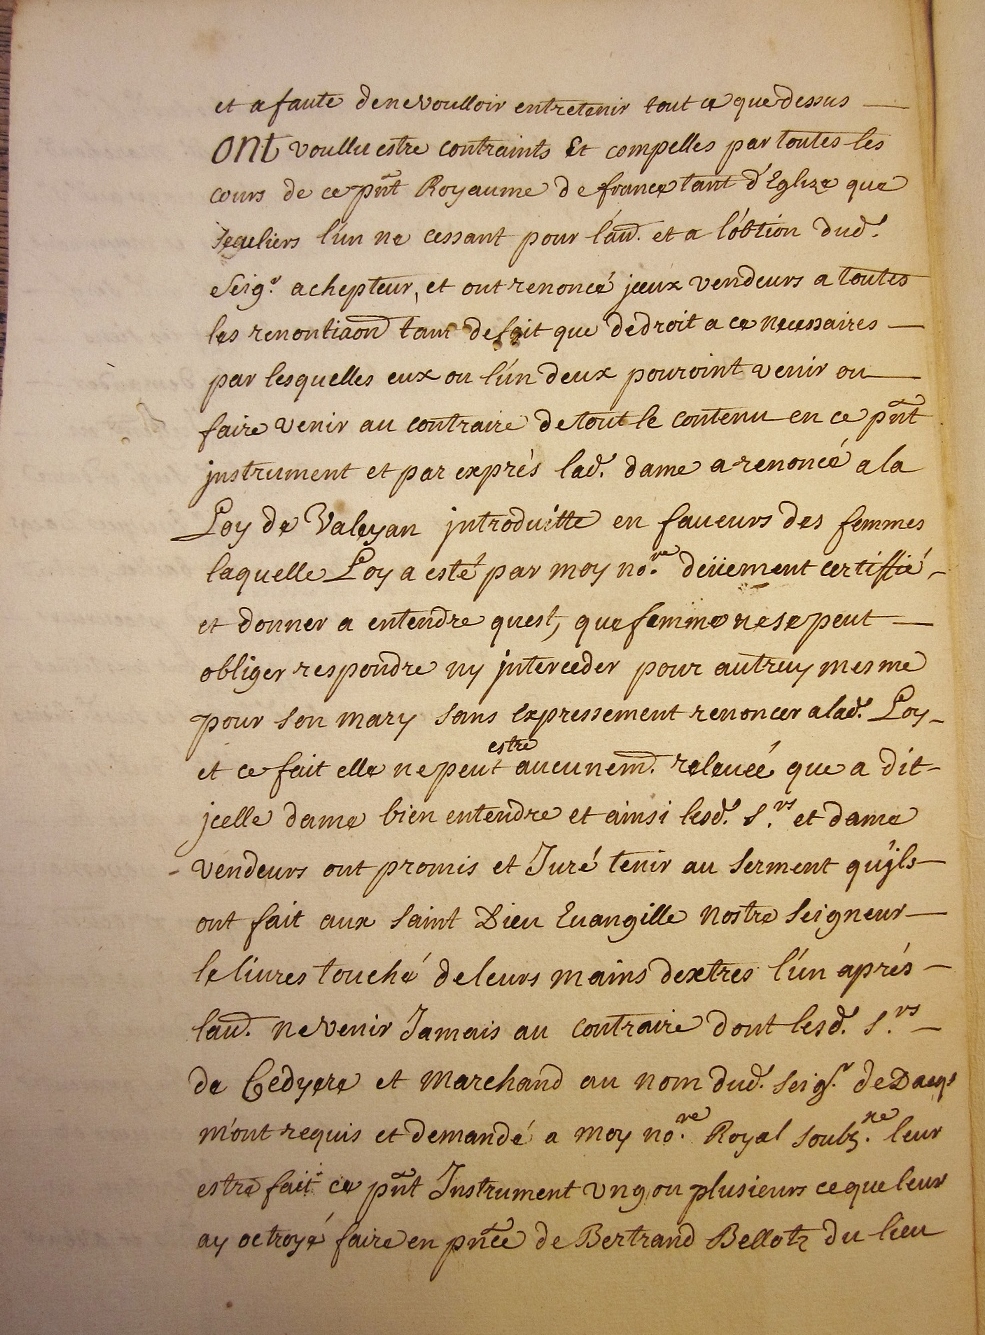 et a faute de ne voulloir entretenir tout ce que dessus
ont voullu estre contraints Et compelles par toutes les
cours de ce pñt Royaume de france tant d'Eglize que
segeliers l'un ne cessant pour l'au. et a l'obtion dud.
Seigr. achepteur, et ont renoncé jceux vendeurs a toutes
les renontiaõn tant de fait que de droit a ce necessaires
par lesquelles eux ou l'un deux pouroint venir ou
faire venir au contraire de tout le contenu en ce pñt
jnstrument et par exprés lad. dame a renoncé a la
Loy de Valeyan jntroduitte en faueurs des femmes
laquelle Loy a esté par moy no.re deüement certiffié
et donner a entendre quest, que femme ne se peut
obliger respondre ny jnterceder pour autruy mesme
pour son mary sans expressement renoncer a lad. Loy
et ce fait elle ne peut estre aucunem̃. releuéé que a dit
jcelle dame bien entendre et ainsi lesd. s.rs et dame
vendeurs ont promis et Juré tenir au serment qu'jls
ont fait aux saint Dieu Euangille nostre seigneur
le liures touché de leurs mains dextres l'un aprés
l'au. ne venir Jamais au contraire dont lesd. s.rs
de Cedyere et Marchand au nom dud. seig.r de Dacqs
m'ont requis et demandé a moy no.re Royal soubz.ne leur
estre fait ce pñt Instrument vng ou plusieurs ce que leur
ay octroyé faire en pñce de Bertrand Bellotz du lieu